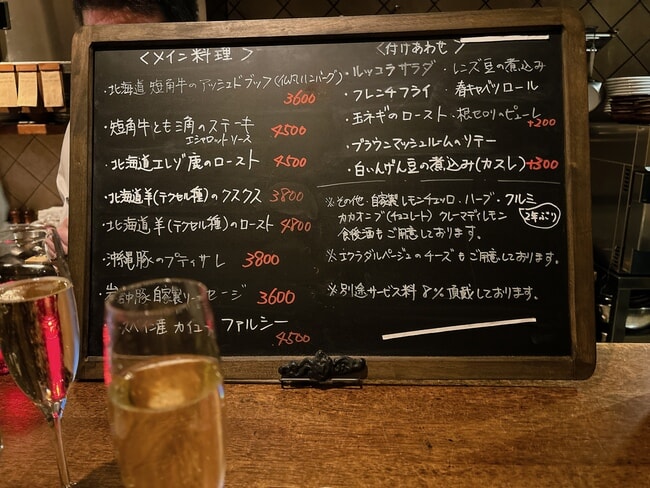 ＜メイン料理＞
・北海道 短角牛のアッシュドブッフ(仏ハンバーグ)
3600
・短角牛とも三角のステーキ
エシャロットソース
4500
・北海道エレゾ鹿のロースト
4500
・北海道羊(テクセル種)のクスクス 3800
・北海道羊(テクセル種)のロースト 4800
・沖縄豚のプティサレ 3800
中豚自家製 ーセージ 3600
ペイン産 カイユ ファルシー
4500
＜付けあわせ＞
・ルッコラサラダ ・レンズ豆の煮込み
・フレンチフライ ・春キャベツロール
・玉ネギのロースト ・根セロリのピューレ
+200
・ブラウンマッシュルームのソテー
・白いんげん豆の煮込み(カスレ) +300
※その他・自家製 レモンチェッロ・ハーブ・クルミ
カカオニブ(チョコレート) クレーマディレモン 2年ぶり
食後酒もご用意しております。
※エクラダルパージュのチーズもご用意しております。
※別途サービス料 8%頂戴しております。